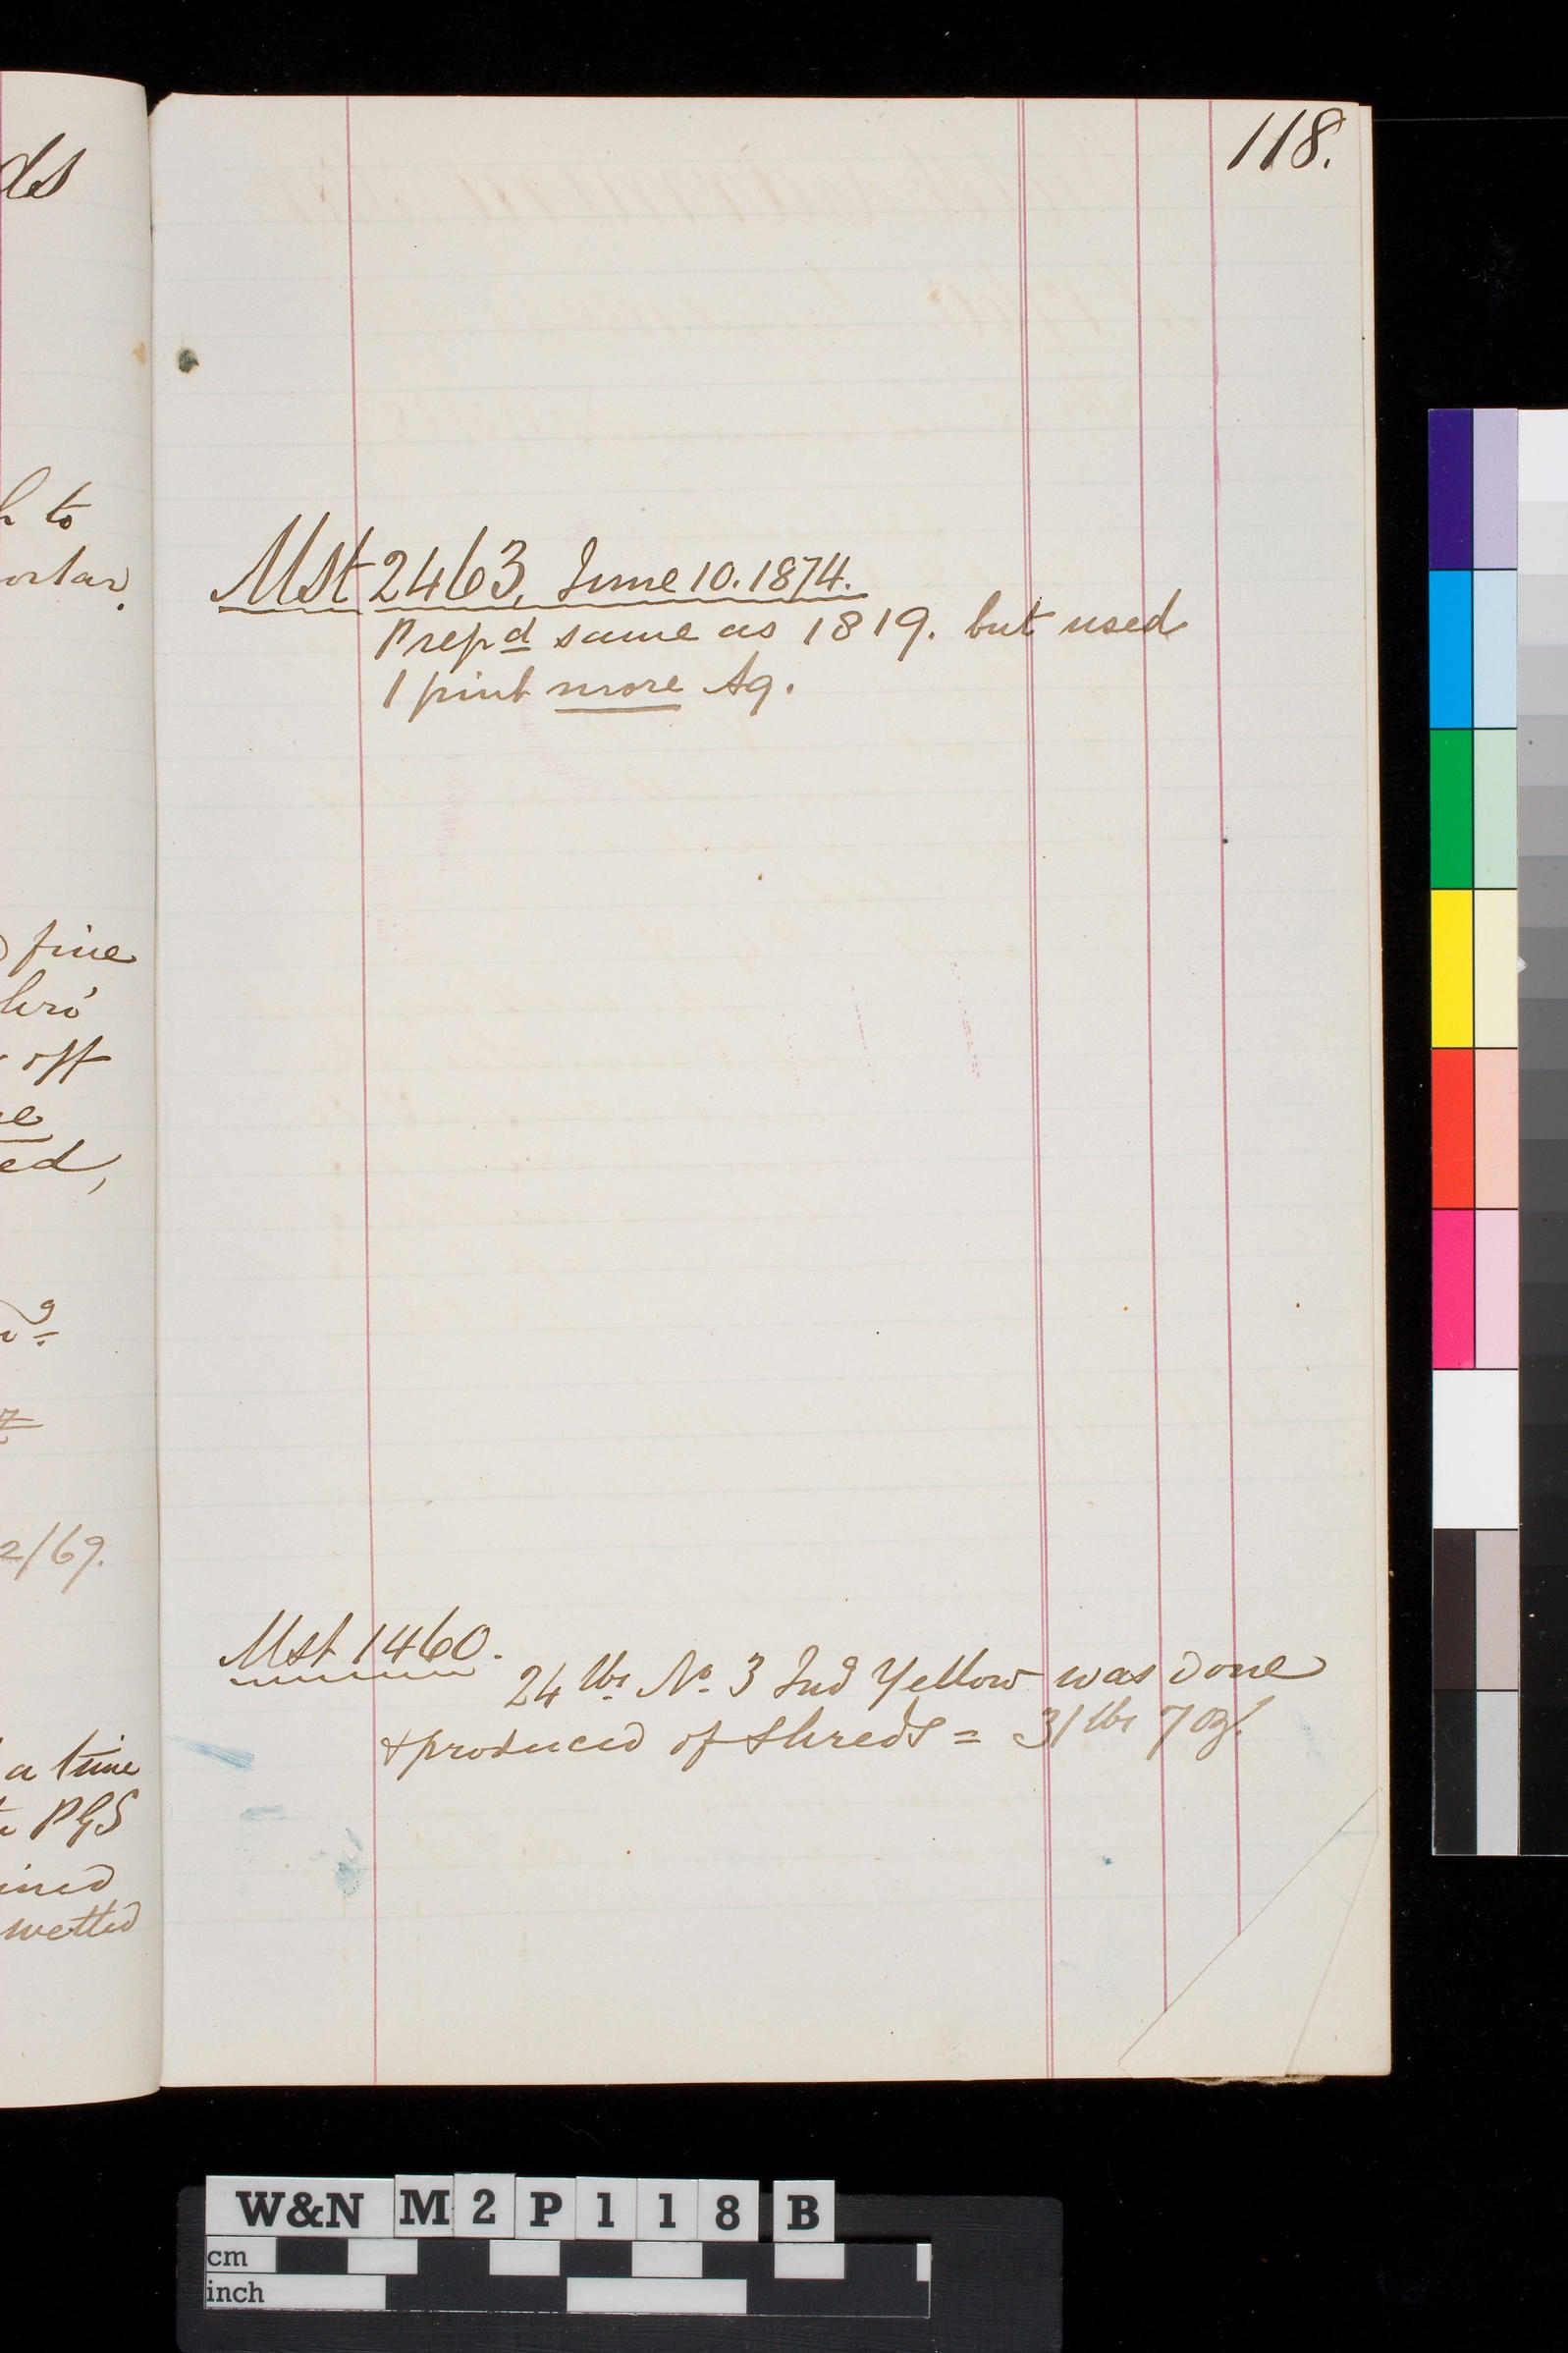 118.
ds
h to
ortar.
fine
thro'
off
ed,
2/69.
a time
PGS
ined
wetted
Mst 2463, June 10. 1874.
Prepd same as 1819. but used
1 pint more Aq.
Mst 1460.
24 lbs No. 3 Ind Yellow was done
& produced of shreds = 31 lbs 7 oz.
W&N M2P118B
cm
inch